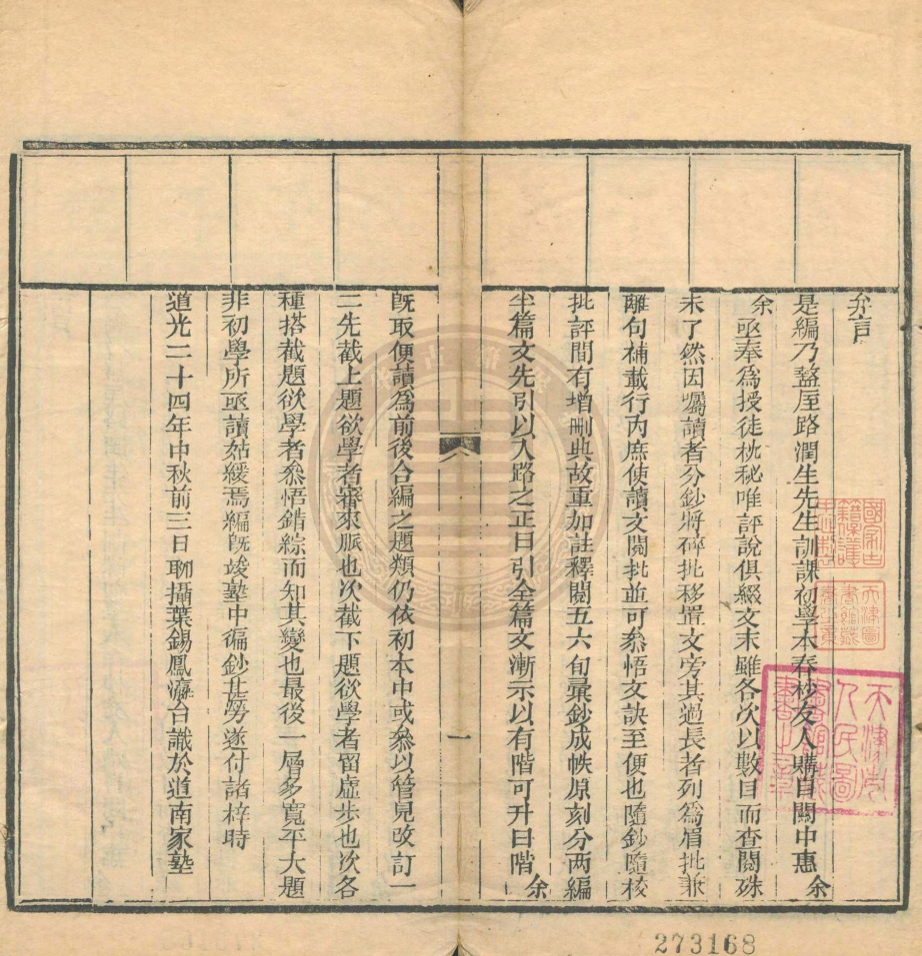 弁言
是編乃盩厔路潤生先生訓課初學本春杪友人購自關中惠余
余亟奉爲授徒枕秘唯評說俱綴文末雖各次以數目而查閱殊
未了然因囑讀者分鈔將碎批移置文旁其過長者列爲眉批兼
離句補載行內庶使讀文閱批並可叅悟文訣至便也隨鈔隨校
批評間有增刪典故重加註釋閱五六旬彙鈔成帙原刻分两編
半篇文先引以入路之正曰引全篇文漸示以有階可升曰階余
旣取便讀爲前後合編之題類仍依初本中或叅以管見改訂一
二先截上題欲學者審來脈也次截下題欲學者留虛步也次各
種搭截題欲學者叅悟錯綜而知其變也最後一層多寬平大題
非初學所亟讀姑緩焉編旣竣塾中徧鈔甚勞遂付諸梓時
道光二十四年中秋前三日聊攝葉錫鳳瀛台識於道南家塾
一
國家古籍保護
天津圖書館藏
天津市人民圖書館藏書之章
273168